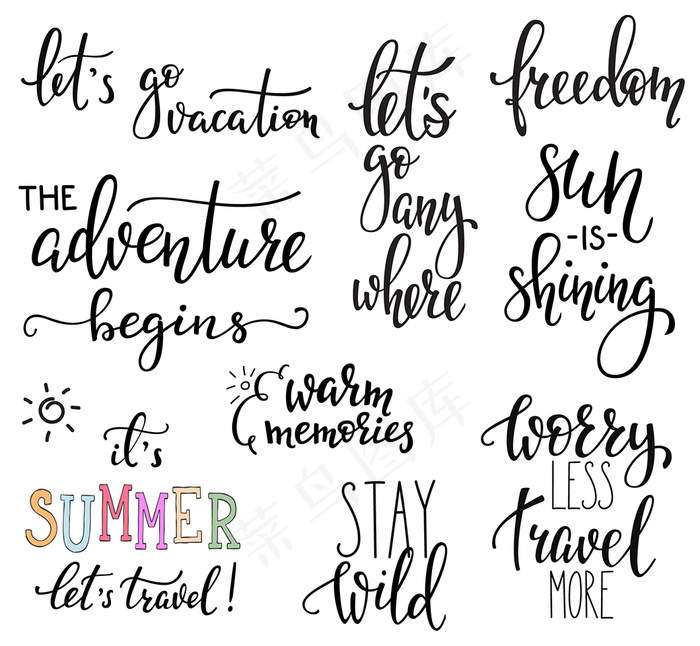 let's go
vacation
let's
go
any
where
freedom
THE
adventure
begins
sun
-IS-
shining
warm
memories
it's
SUMMER
let's travel!
STAY
wild
worry
LESS
travel
MORE
菜鸟图库
菜鸟图库